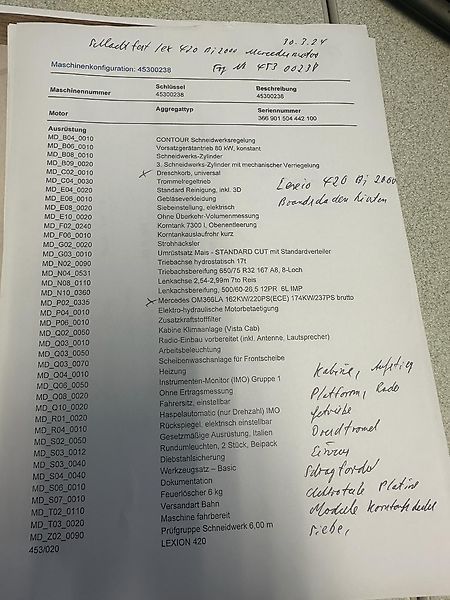 Schlachtfest lex 420 Bj 2000 Mercedesmotor 30.3.24
Maschinenkonfiguration: 45300238
Fg Nr 453 00238
Maschinennummer Schlüssel Beschreibung
45300238 45300238
Motor Aggregattyp Seriennummer
366 901 504 442 100
Ausrüstung
MD_B04_0010 CONTOUR Schneidwerksregelung
MD_B06_0010 Vorsatzgerätantrieb 80 kW, konstant
MD_B08_0010 Schneidwerks-Zylinder
MD_B09_0020 3. Schneidwerks-Zylinder mit mechanischer Verriegelung
MD_C02_0010 Dreschkorb, universal
MD_C04_0030 Trommelregeltrieb
MD_E04_0020 Standard Reinigung, inkl. 3D
MD_E06_0010 Gebläseverkleidung
MD_E08_0020 Siebeinstellung, elektrisch
MD_E10_0020 Ohne Überkehr-Volumenmessung
MD_F02_0240 Korntank 7300 l, Obenentleerung
MD_F06_0010 Korntankauslaufrohr kurz
MD_G02_0020 Strohhäcksler
MD_G03_0010 Umrüstsatz Mais - STANDARD CUT mit Standardverteiler
MD_N02_0090 Triebachse hydrostatisch 17t
MD_N04_0531 Triebachsbereifung 650/75 R32 167 A8, 8-Loch
MD_N08_0110 Lenkachse 2,54-2,99m 7to Reis
MD_N10_0360 Lenkachsbereifung, 500/60-26.5 12PR 6L IMP
MD_P02_0335 Mercedes OM366LA 162KW/220PS(ECE) 174KW/237PS brutto
MD_P04_0010 Elektro-hydraulische Motorbetaetigung
MD_P06_0010 Zusatzkraftstofffilter
MD_Q02_0050 Kabine Klimaanlage (Vista Cab)
MD_Q03_0010 Radio-Einbau vorbereitet (inkl. Antenne, Lautsprecher)
MD_Q03_0050 Arbeitsbeleuchtung
MD_Q03_0070 Scheibenwaschanlage für Frontscheibe
MD_Q04_0010 Heizung
MD_Q06_0050 Instrumenten-Monitor (IMO) Gruppe 1
MD_Q08_0020 Ohne Ertragsmessung
MD_Q10_0020 Fahrersitz, einstellbar
MD_R01_0020 Haspelautomatic (nur Drehzahl) IMO
MD_R04_0010 Rückspiegel, elektrisch einstellbar
MD_S02_0050 Gesetzmäßige Ausrüstung, Italien
MD_S03_0012 Rundumleuchten, 2 Stück, Beipack
MD_S03_0040 Diebstahlsicherung
MD_S04_0040 Werkzeugsatz – Basic
MD_S06_0010 Dokumentation
MD_S07_0010 Feuerlöscher 6 kg
MD_T02_0110 Versandart Bahn
MD_T03_0020 Maschine fahrbereit
MD_Z02_0090 Prüfgruppe Schneidwerk 6,00 m
453/020 LEXION 420
Lexio 420 Bj 2000
Brandschaden hinten
Kabine, Aufstieg
Platform,
Getriebe
Dreschtromel
Einzug
Platine
Module
Siebe,